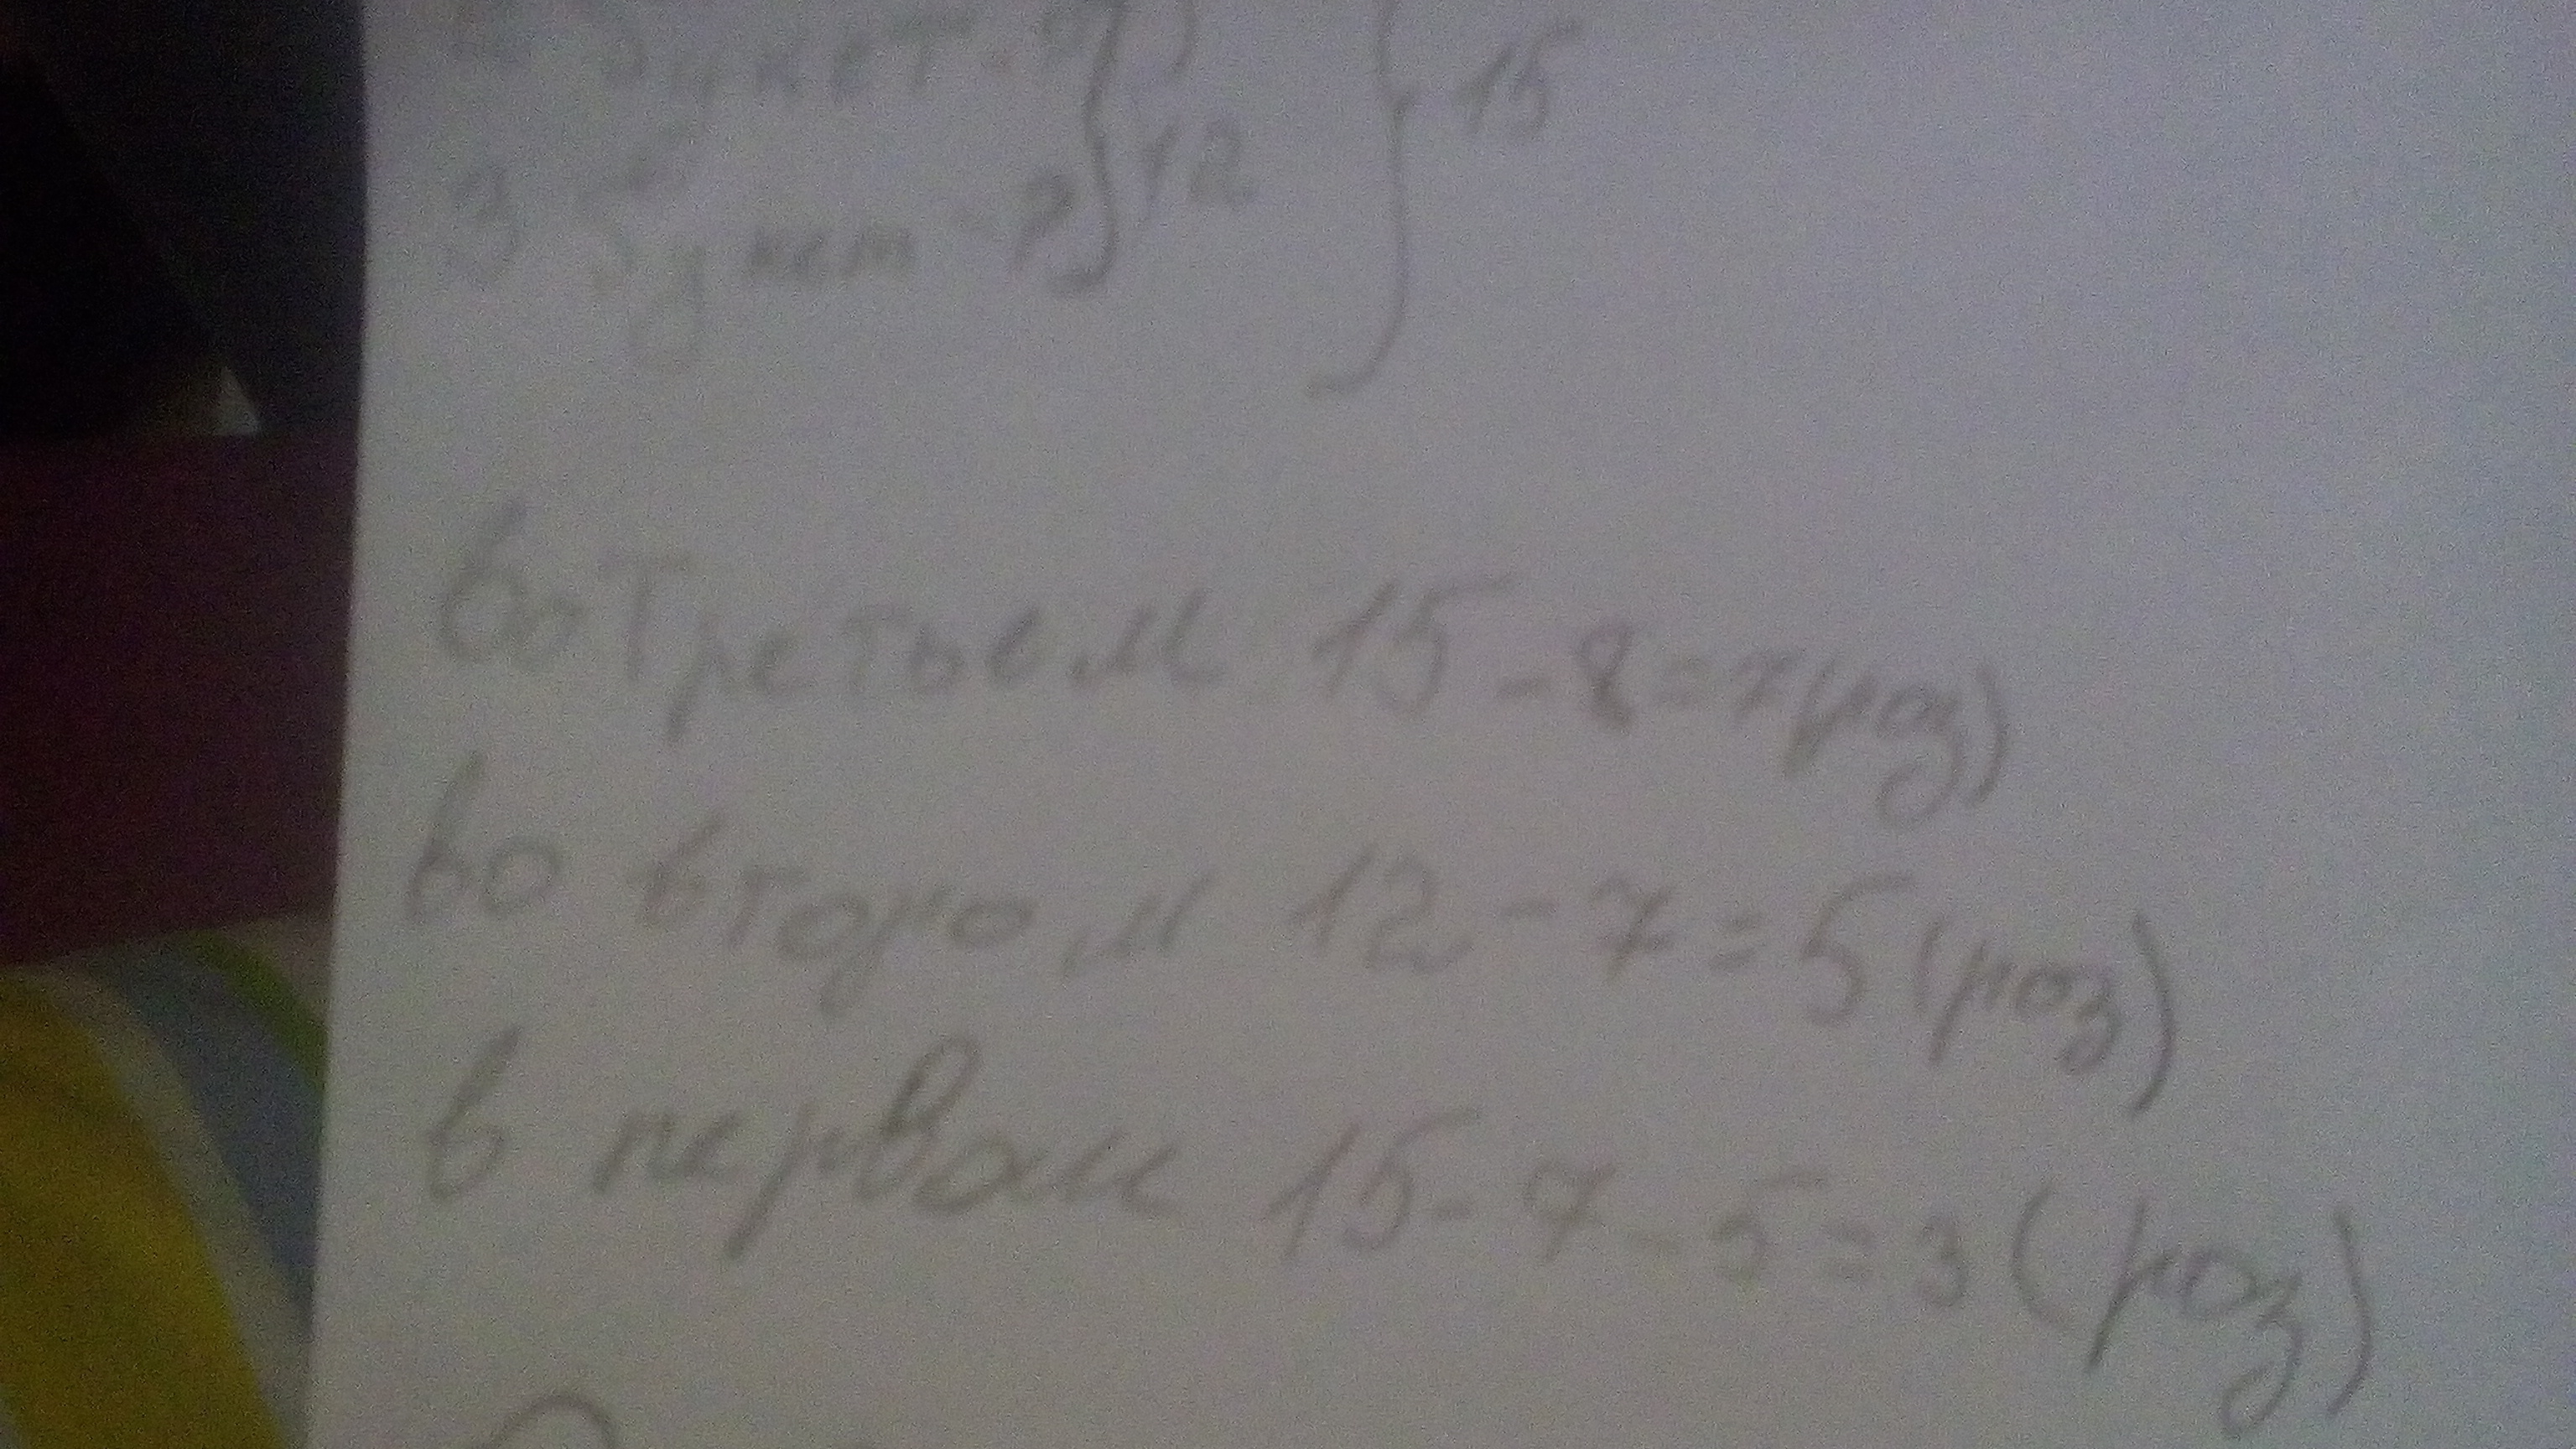 букет ?
} 15
3 букет - ?
} 12
во третьем 15 - 8 = 7 (роз)
во втором 12 - 7 = 5 (роз)
в первом 15 - 7 - 5 = 3 (роз)